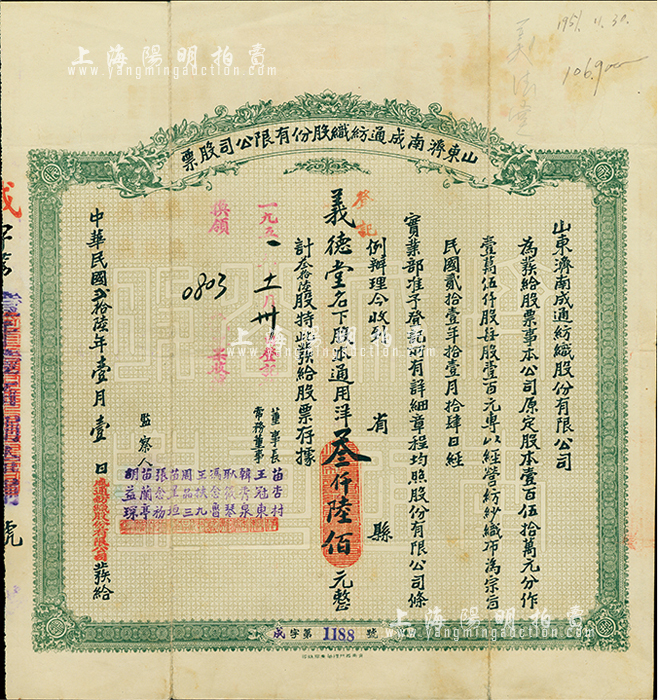 上海陽明拍賣
www.yangmingauction.com
1951. 11. 30.
106,900
山東濟南成通紡織股份有限公司股票
山東濟南成通紡織股份有限公司
為發給股票事本公司原定股本壹百伍拾萬元分作
壹萬伍仟股每股壹百元專以經營紡紗織布為宗旨
民國貳拾壹年拾壹月拾肆日經
實業部准予登記所有詳細章程均照股份有限公司條
例辦理今收到 省 縣
義德堂名下股本通用洋叁仟陸佰元整
計叁拾陸股特此發給股票存據
登記
一九五一 十一 卅
換領
0803
董事長
常務董事
苗杏村
王冠東
韓秀泉
耿筱琴
馮念魯
王扶九
周品三
苗星垣
張
苗蘭亭
胡益琛
監察人
中華民國貳拾陸年壹月壹日
成通紡織股份有限公司
發給
成字第 1188 號
上海陽明拍賣
www.yangmingauction.com